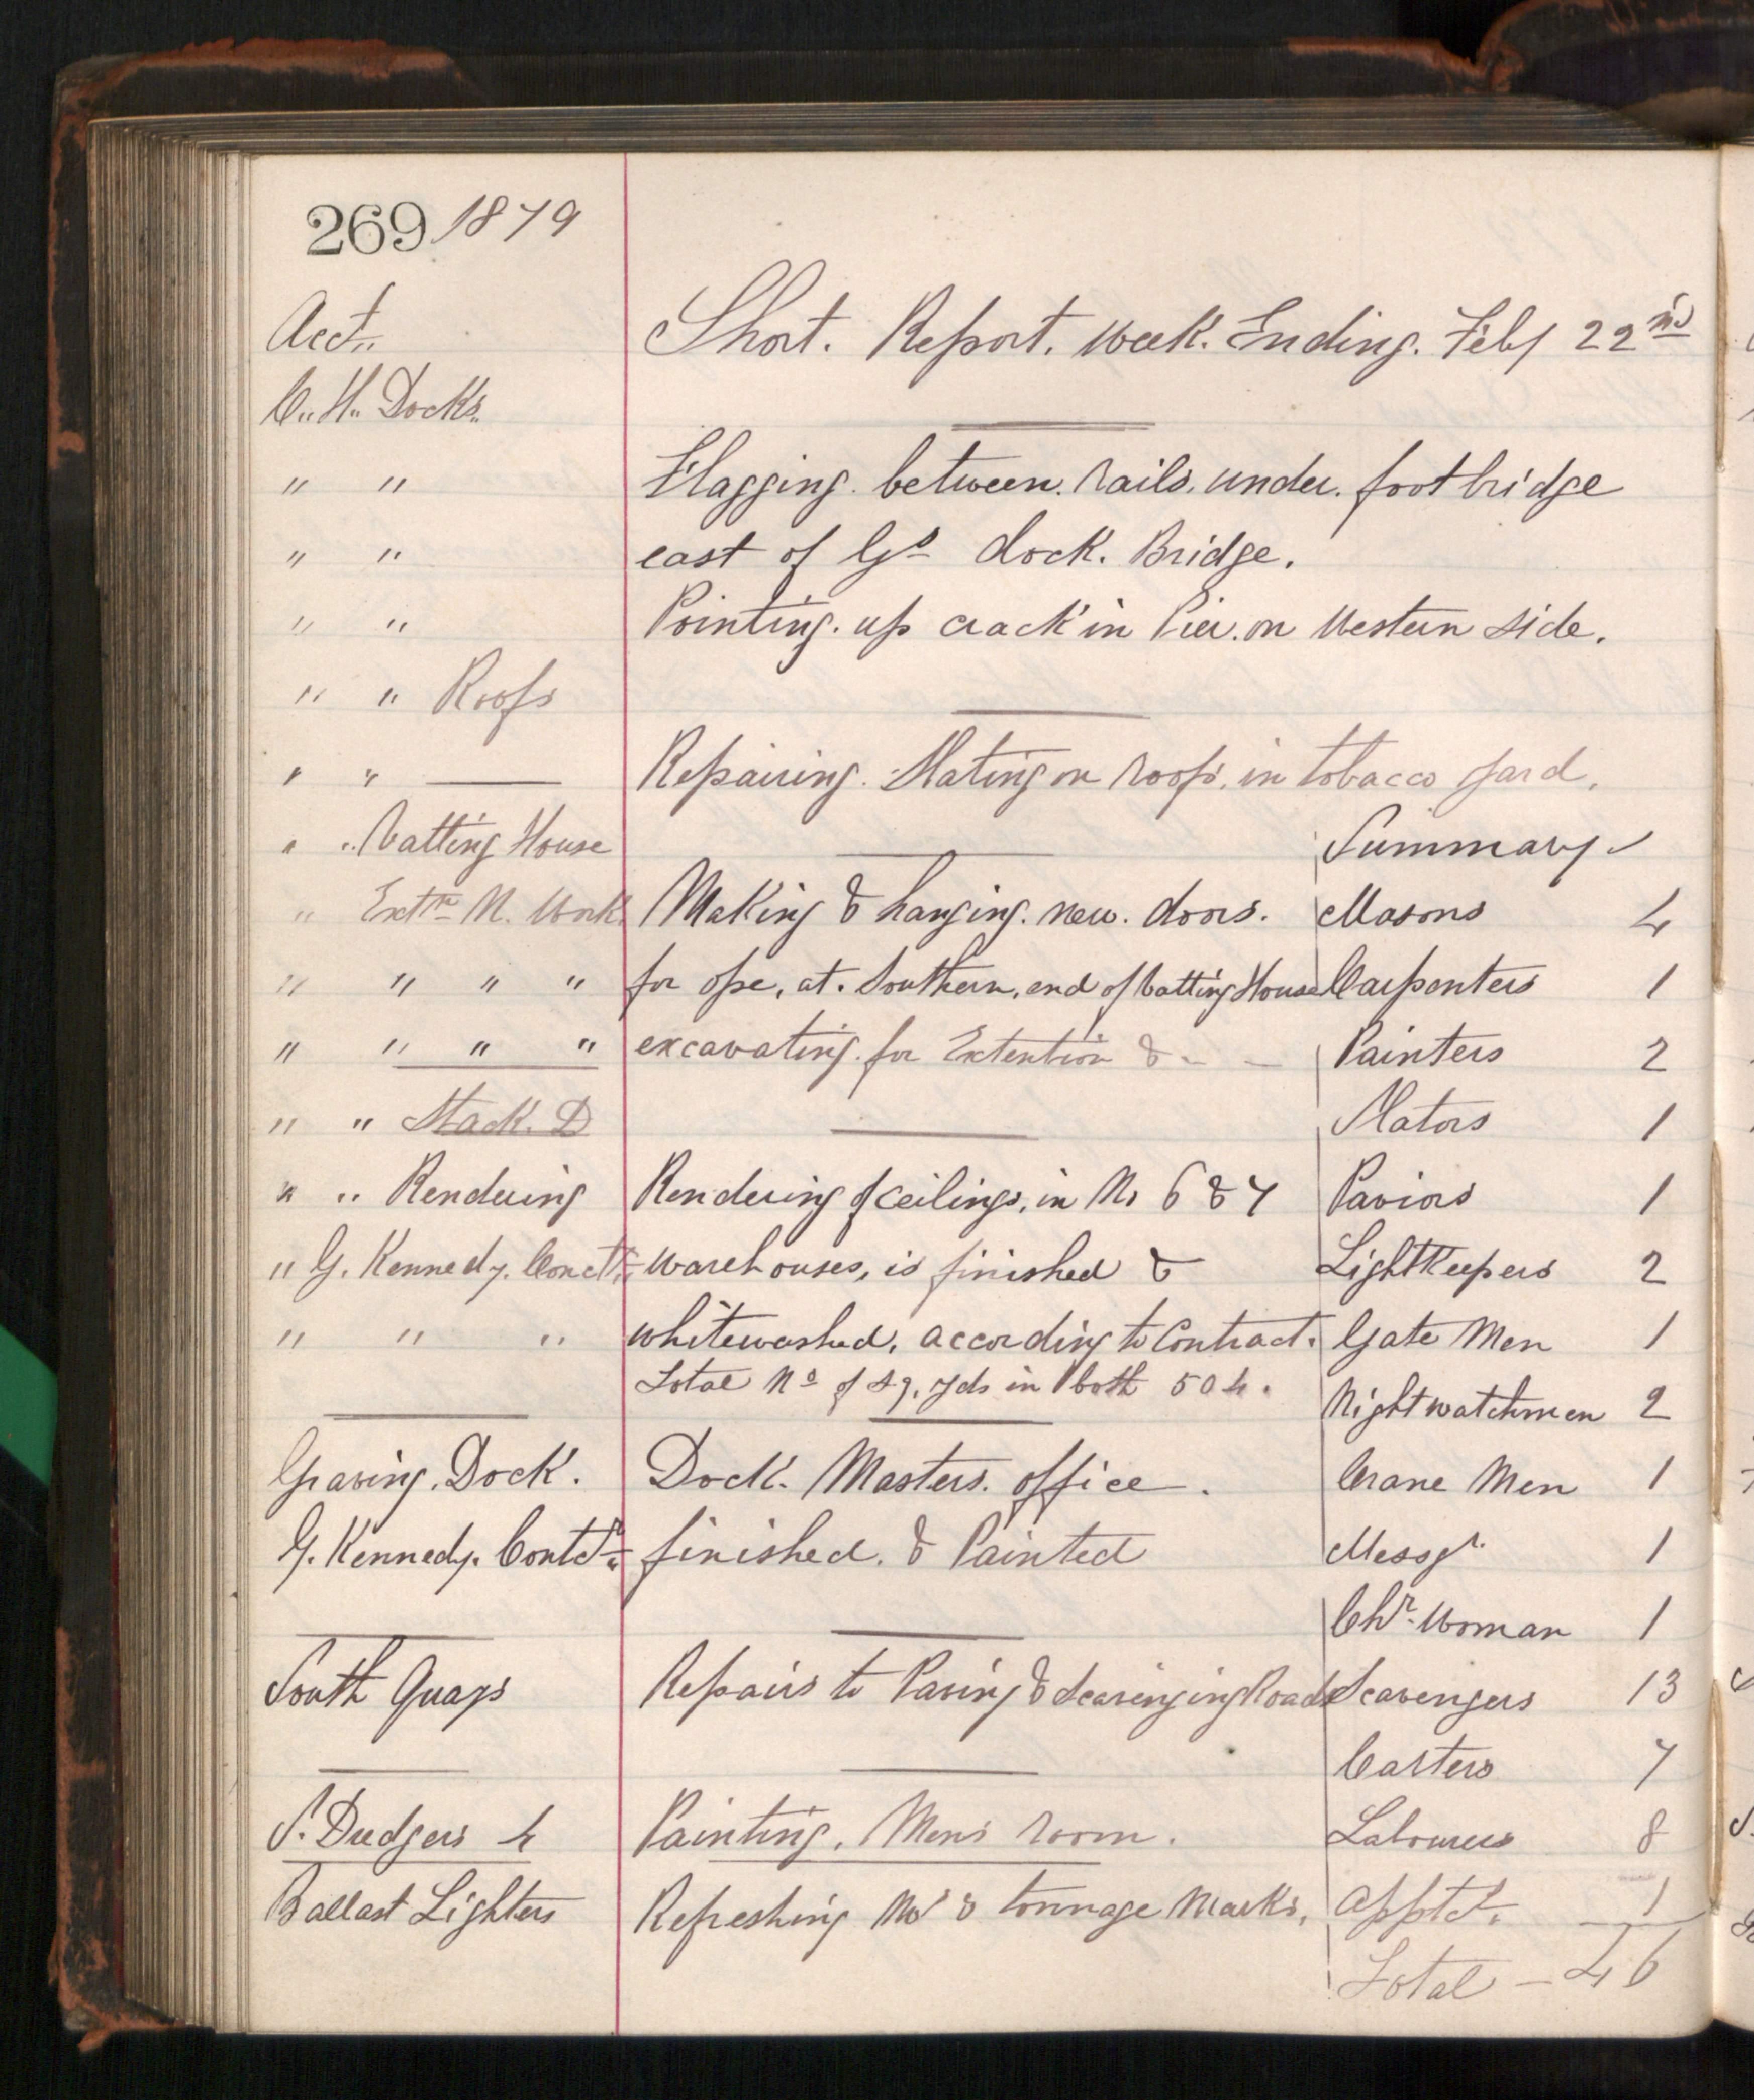 269 1879
Acct.
Short. Report. Week. Ending. Feby 22nd
C.. H.. Docks.
" " Flagging. between. rails. under. foot bridge
" " east of Gs dock. Bridge.
" " Pointing. up crack in Pier. on Western side.
" " Roofs
" " Repairing. Slating on roofs. in tobacco yard.
" " Vatting House Summary
" Extn N. Work Making & hanging. new. doors. Masons 4
" " " " for ope, at. Southern. end of Vatting House Carpenters 1
" " " " excavating. for Extention & - - Painters 2
" " Stack. D Slators 1
" " Rendering Rendering of Ceilings, in No 6 & 7 Paviors 1
" G. Kennedy. Warehouses, is finished & LightKeepers 2
" " " whitewashed. according to Contract. Gate Men 1
Total No of sq. yds in both 504. Nightwatchmen 2
Graving. Dock. Dock. Masters. office. Crane Men 1
G. Kennedy. Contdr finished. & Painted Messgr. 1
Chr. Woman 1
South Quays Repairs to Paving & Scavenging Roads Scavengers 13
Carters 7
S. Dredgers 4 Painting. Mens room. Labourers 8
Ballast Lighters Refreshing Nos & tonnage Marks. Apptd. 1
Total - 46